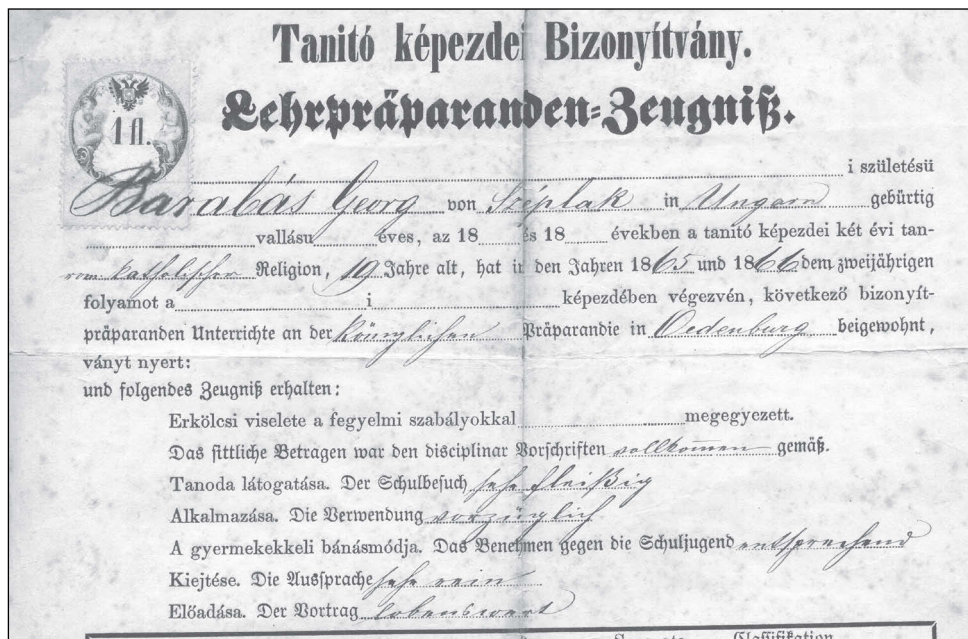 Tanitó képezdei Bizonyítvány.
Lehrpräparanden=Zeugniß.
1 fl.
i születésü
Barabás Georg von Széplak in Ungarn gebürtig
vallásu éves, az 18 és 18 években a tanitó képezdei két évi tan-
rom. katholischer Religion, 19 Jahre alt, hat in den Jahren 1865 und 1866 dem zweijährigen
folyamot a i képezdében végezvén, következő bizonyít-
präparanden Unterrichte an der königlichen Präparandie in Oedenburg beigewohnt,
ványt nyert:
und folgendes Zeugniß erhalten:
Erkölcsi viselete a fegyelmi szabályokkal megegyezett.
Das sittliche Betragen war den disciplinar Vorschriften vollkommen gemäß.
Tanoda látogatása. Der Schulbesuch sehr fleißig
Alkalmazása. Die Verwendung vorzüglich
A gyermekekkeli bánásmódja. Das Benehmen gegen die Schuljugend entsprechend
Kiejtése. Die Aussprache sehr rein
Előadása. Der Vortrag lobenswert
Classifikation